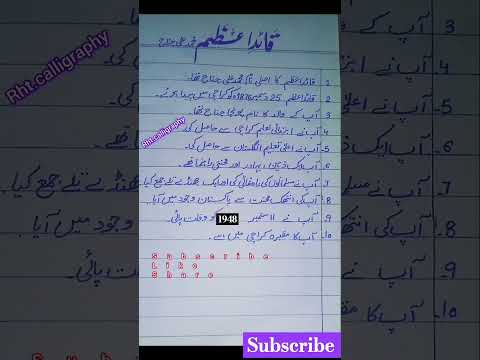 قائداعظم محمد علی جناح
1۔ قائداعظم کا اصلی نام محمد علی جناح تھا۔
2۔ قائداعظم 25 دسمبر 1876 کو کراچی میں پیدا ہوئے۔
3۔ آپ کے والد کا نام پونجا جناح تھا۔
4۔ آپ نے ابتدائی تعلیم کراچی سے حاصل کی۔
5۔ آپ نے اعلیٰ تعلیم انگلستان سے حاصل کی۔
6۔ آپ ایک ذہین، بہادر اور محنتی رہنما تھے۔
7۔ آپ نے مسلمانوں کی راہنمائی کی اور ایک جھنڈے تلے جمع کیا۔
8۔ آپ کی انتھک محنت سے پاکستان وجود میں آیا۔
9۔ آپ نے 11 ستمبر 1948 کو وفات پائی۔
10۔ آپ کا مقبرہ کراچی میں ہے۔
Rht.calligraphy
Rht.calligraphy
Subscribe
Like
Share
Subscribe
3
آپ کے
4۔ آپ نے ا
5۔ آپ نے اعلیٰ
6۔ آپ ایک
7۔ آپ نے
8۔ آپ کی
9۔ آپ نے
10۔ آپ کا
کی۔
تھے۔
جھنڈے تلے جمع کیا۔
وجود میں آیا۔
وفات پائی۔